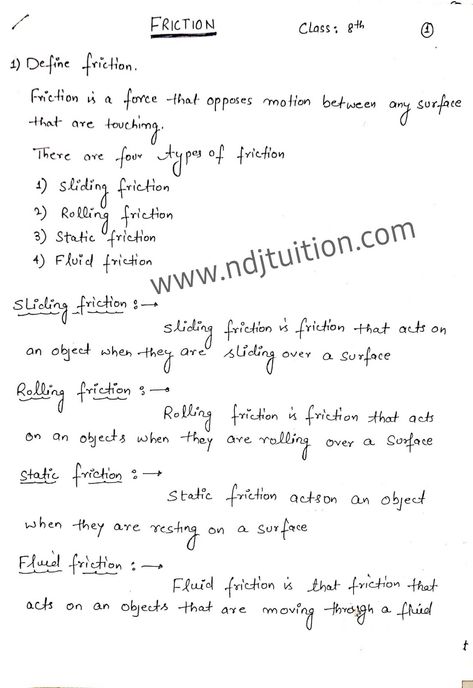 FRICTION Class: 8th 1
1) Define friction.
Friction is a force that opposes motion between any surface
that are touching.
There are four types of friction
1) Sliding friction
2) Rolling friction
3) Static friction
4) Fluid friction
www.ndjtuition.com
Sliding friction :→
Sliding friction is friction that acts on
an object when they are sliding over a surface
Rolling friction :→
Rolling friction is friction that acts
on an objects when they are rolling over a surface
Static friction :→
Static friction acts on an object
when they are resting on a surface
Fluid friction :→
Fluid friction is that friction that
acts on an objects that are moving through a fluid